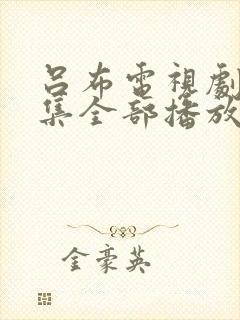 呂布電視劇
集全部播放
金豪英